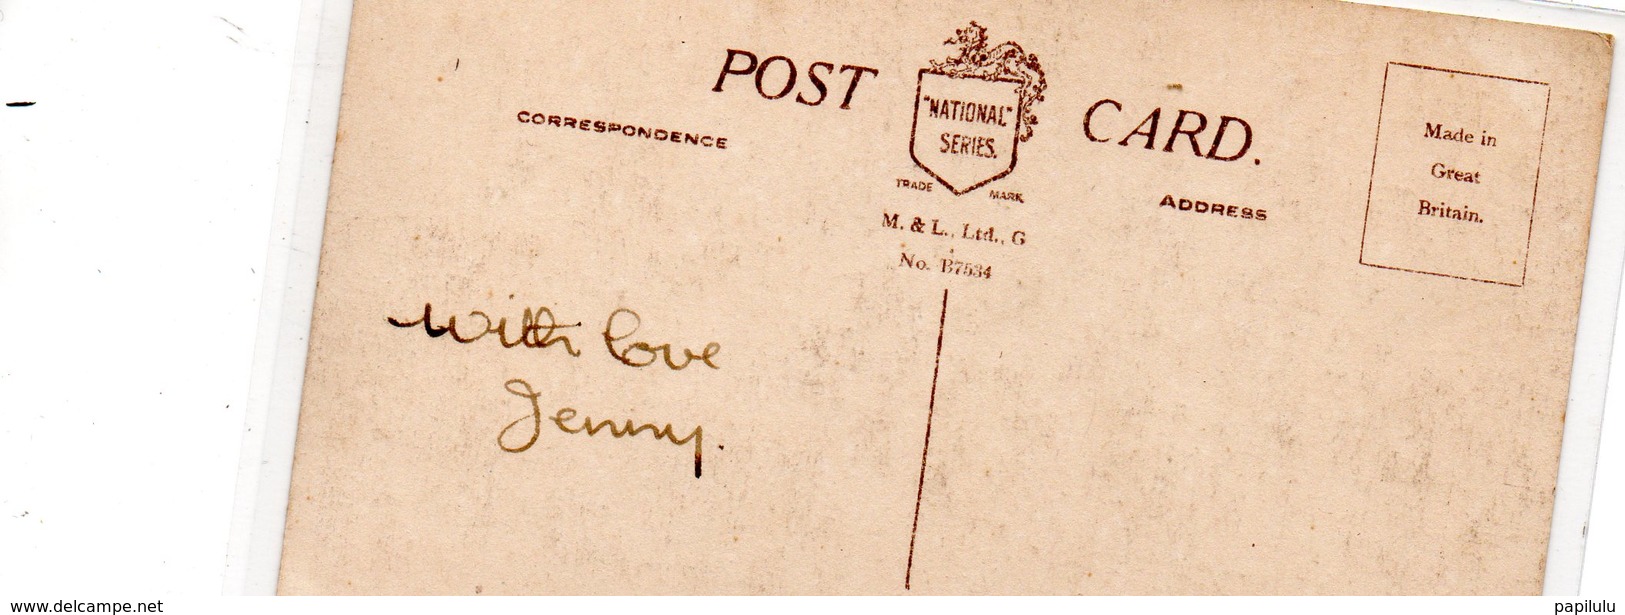 POST CARD.
"NATIONAL"
SERIES.
TRADE MARK
CORRESPONDENCE
ADDRESS
M. & L., Ltd., G
No. B7534
Made in
Great
Britain.
With love
Jenny.
www.delcampe.net
papilulu